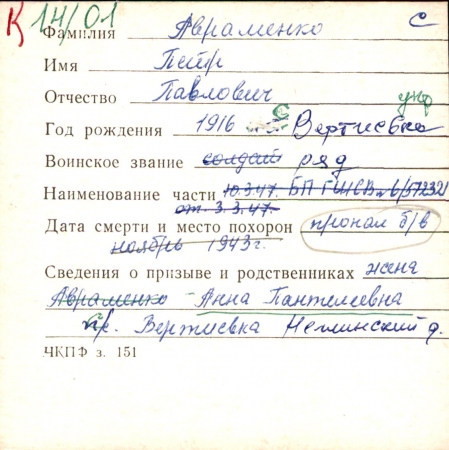 К 14/01
Фамилия Авраменко С
Имя Петр
Отчество Павлович укр
Год рождения 1916 с Вертиевка
Воинское звание солдат ряд
Наименование части 10.3.47. БП ГШСВ
от 3.3.47.
Дата смерти и место похорон пропал б/в
ноябрь 1943г.
Сведения о призыве и родственниках жена
Авраменко - Анна Пантелеевна
пр. Вертиевка Нежинский р.
ЧКПФ з. 151